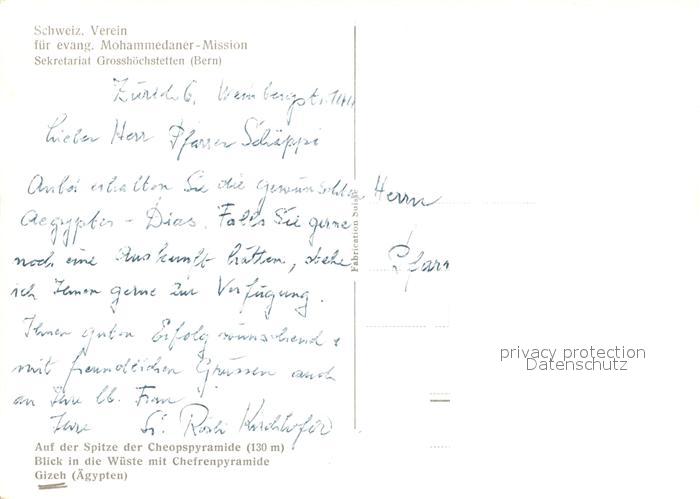 Schweiz. Verein
für evang. Mohammedaner-Mission
Sekretariat Grosshöchstetten (Bern)
Zürich 6, Weinbergstr.
Lieber Herr Pfarrer Schäppi
Anbei erhalten Sie die gewünschten
Aegypten - Dias. Falls Sie gerne
noch eine Auskunft hätten, stehe
ich Ihnen gerne zur Verfügung.
Ihnen guten Erfolg wünschend &
mit freundlichen Grüssen auch
an Ihre lb. Frau
Ihre Rösli Kirchhofer
Auf der Spitze der Cheopspyramide (130 m)
Blick in die Wüste mit Chefrenpyramide
Gizeh (Ägypten)
Fabrication Suisse
Herrn
Pfarr
privacy protection
Datenschutz